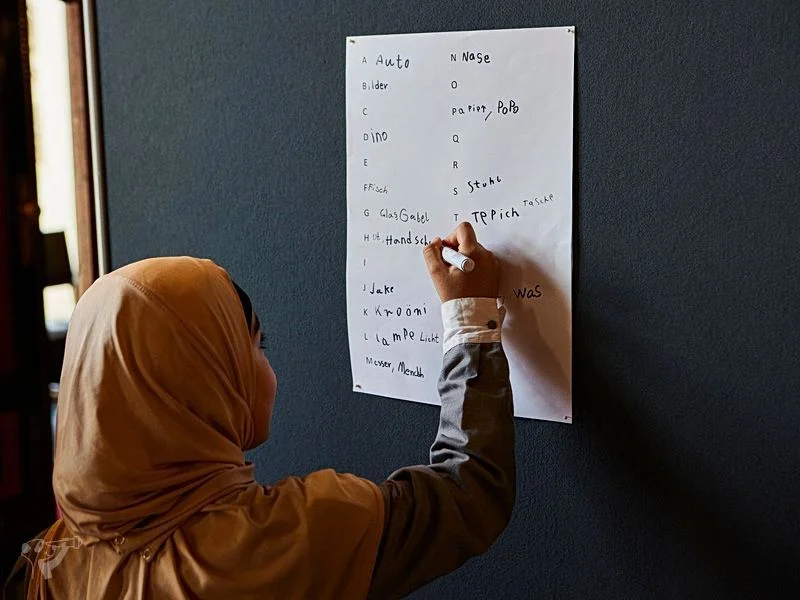 A Auto
Bilder
C
Dino
E
F Fisch
G Glas Gabel
Hut, Handsch
I
Jake
K Kroöni
L Lampe Licht
Messer,
N Nase
O
Papier, PoPo
Q
R
S Stuhl
T TePich Tasche
was